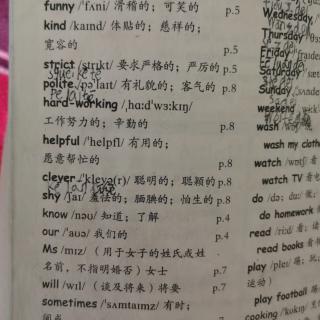 funny /'fʌni/ 滑稽的；可笑的 p.5
kind /kaɪnd/ 体贴的；慈祥的；
宽容的 p.5
strict /strɪkt/ 要求严格的；严厉的 p.5
polite /pə'laɪt/ 有礼貌的；客气的 p.8
hard-working /ˌhɑːd'wɜːkɪŋ/
工作努力的；辛勤的 p.8
helpful /'helpfl/ 有用的；
愿意帮忙的 p.8
clever /'klevə(r)/ 聪明的；聪颖的 p.8
shy /ʃaɪ/ 羞怯的；腼腆的；怕生的 p.8
know /nəʊ/ 知道；了解 p.4
our /'aʊə/ 我们的 p.4
Ms /mɪz/ （用于女子的姓氏或姓
名前，不指明婚否）女士 p.7
will /wɪl/ （谈及将来）将要 p.7
sometimes /'sʌmtaɪmz/ 有时；
Wednesday
Thursday
Friday
Saturday
Sunday
weekend
wash
wash my clothe
watch
watch TV 看电
do
do homework
read 看；读
read books 看书
play /pleɪ/
运动）
play football
cooking